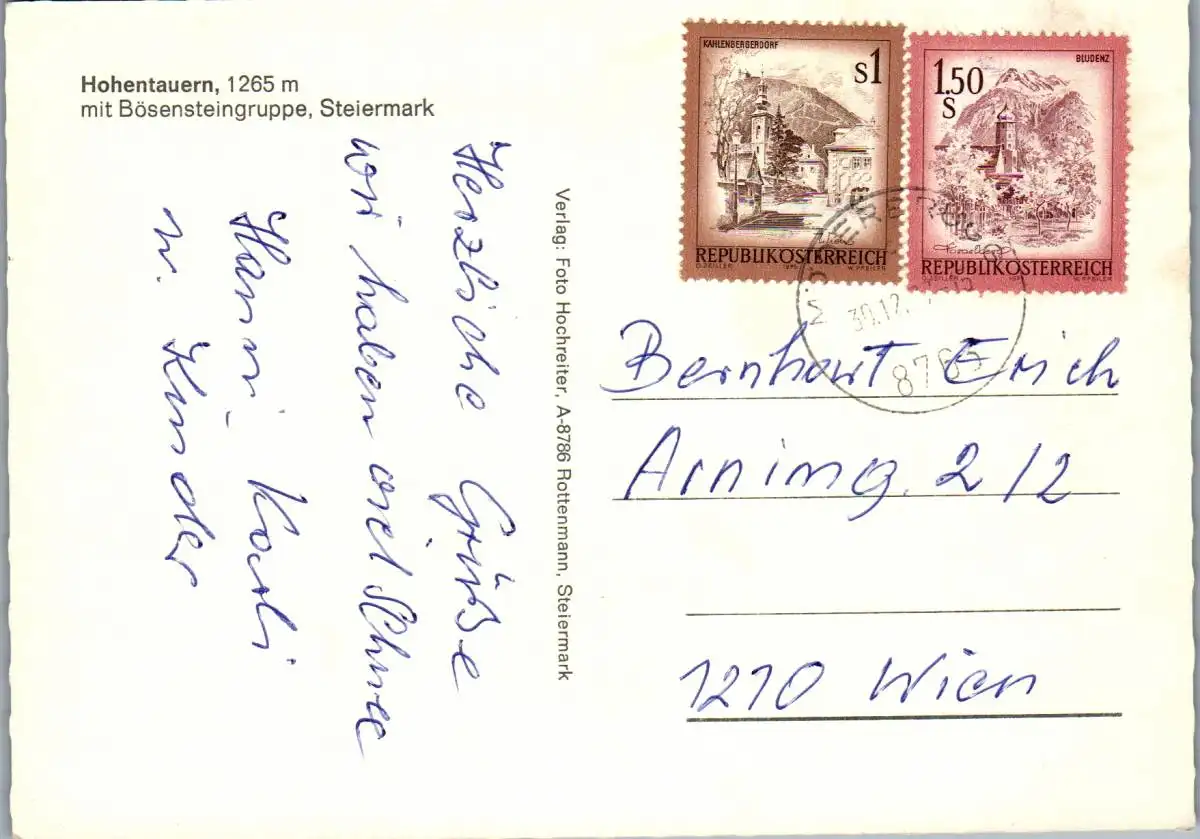 Hohentauern, 1265 m
mit Bösensteingruppe, Steiermark
Herzliche Grüße
wir haben viel Schnee
Hanni, Karli
u. Kinder
Verlag: Foto Hochreiter, A-8786 Rottenmann, Steiermark
KAHLENBERGERDORF
S1
REPUBLIK ÖSTERREICH
O.ZEILLER 1975 W.PFEILER
BLUDENZ
1.50
S
REPUBLIK ÖSTERREICH
O.ZEILLER W.PFEILER
30.12.
8765
Bernhart Erich
Arning. 2/2
1210 Wien